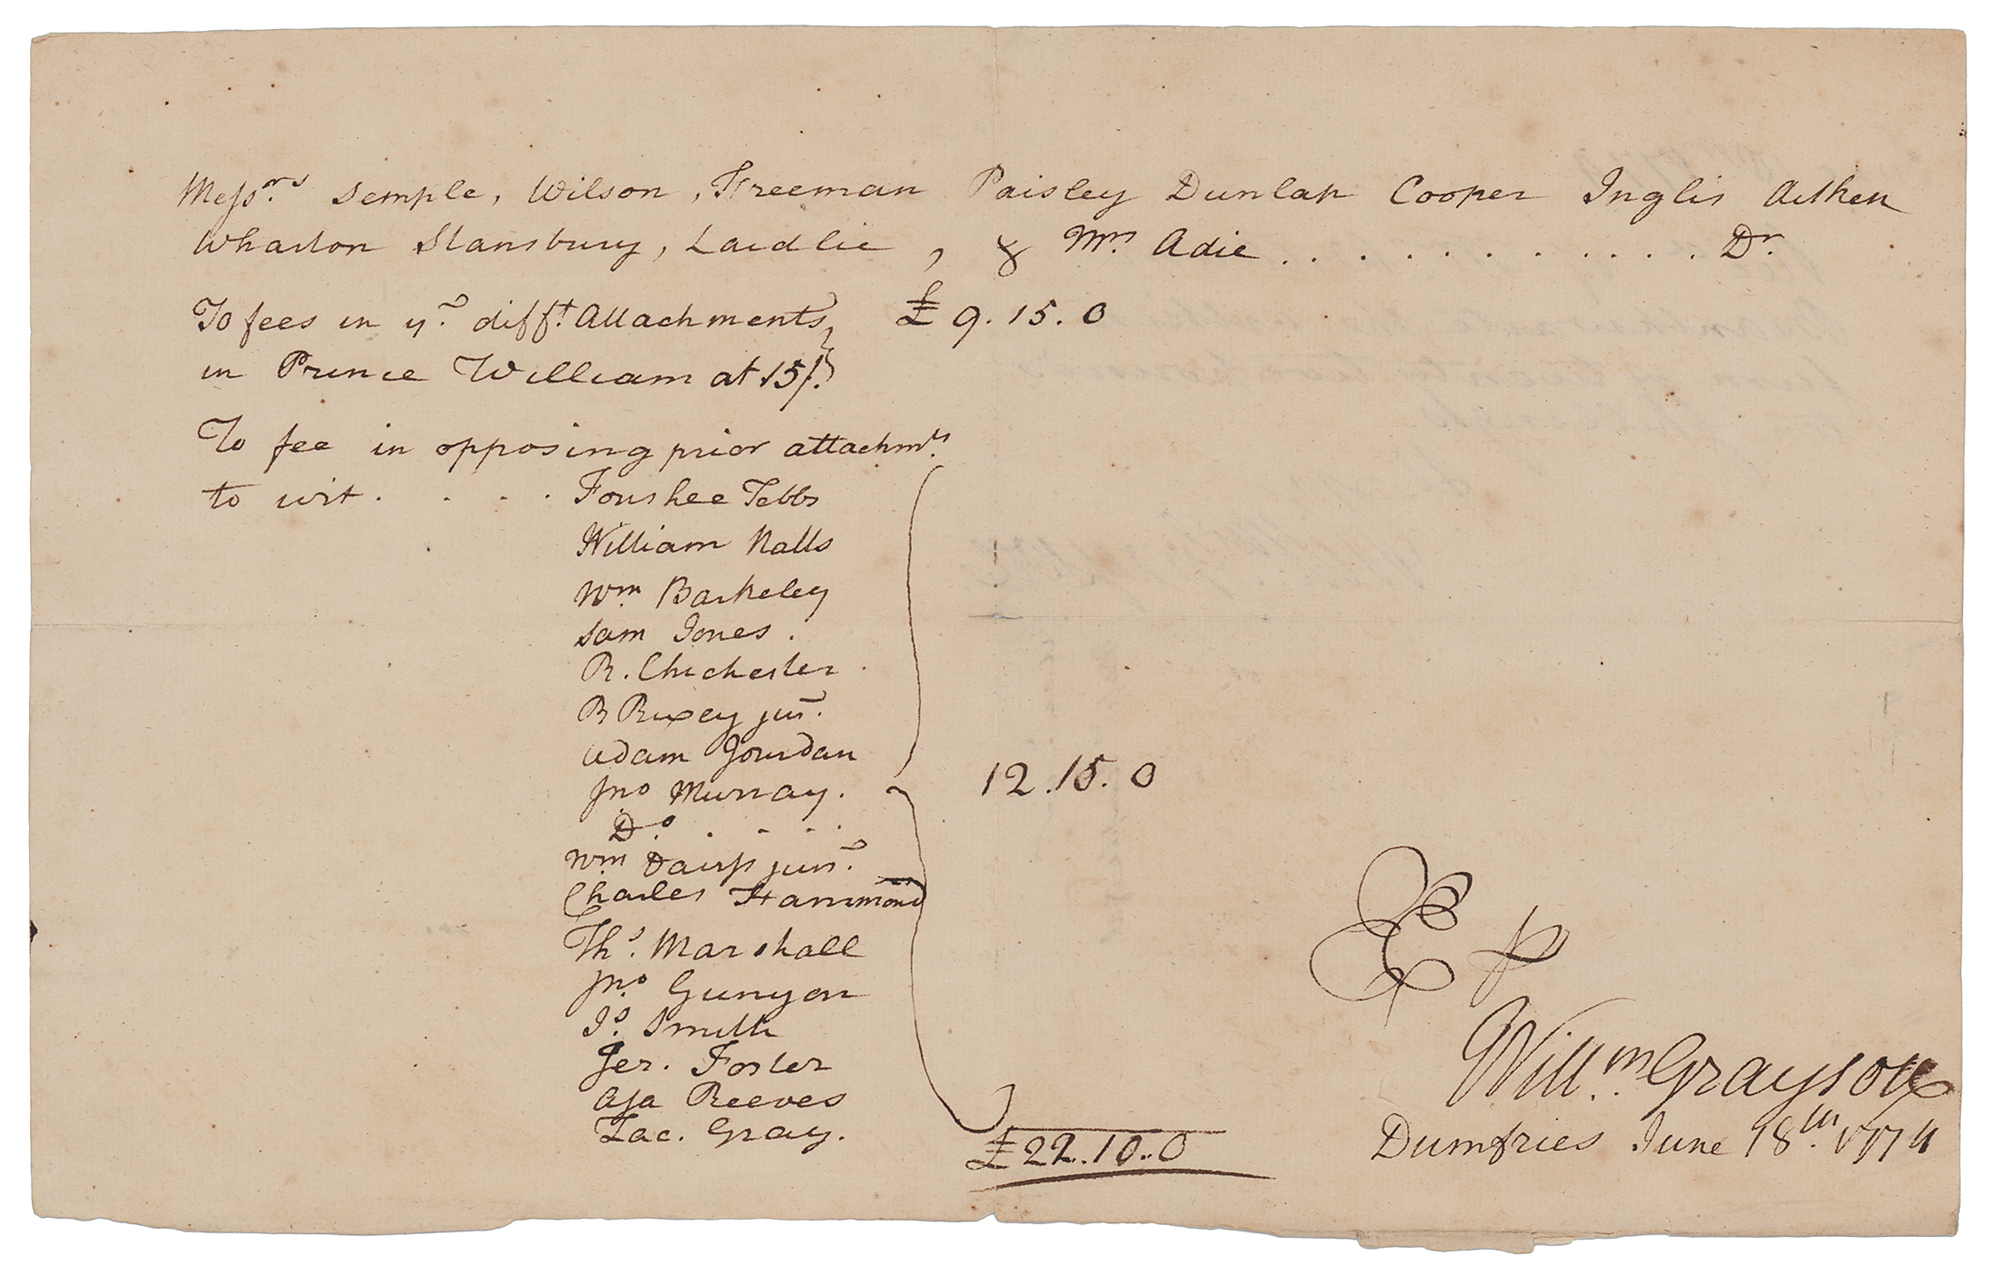 Messrs. Semple, Wilson, Freeman Paisley Dunlap Cooper Inglis Aitken
Wharton Stansbury, Laidlie, & Mrs. Adie . . . . . . . . . . . . Dr
To fees in ye. difft. Attachments, £ 9. 15. 0
in Prince William at 15/.
To fee in opposing prior attachmts.
to wit . . . . Foushee Tebbs
William Nalls
Wm Barkeley
Sam Jones.
R. Chichester
R Buxey junr.
Adam Jourdan
Jno Murray. 12. 15. 0
Do. . . . .
Wm junr.
Charles Hammond
Ths. Marshall
Jno. Gunyon
Js. Smith
Jer. Foster
Asa Reeves
Zac. Gray.
£ 22. 10. 0
E
Willm. Grayson
Dumfries June 18th. 1774